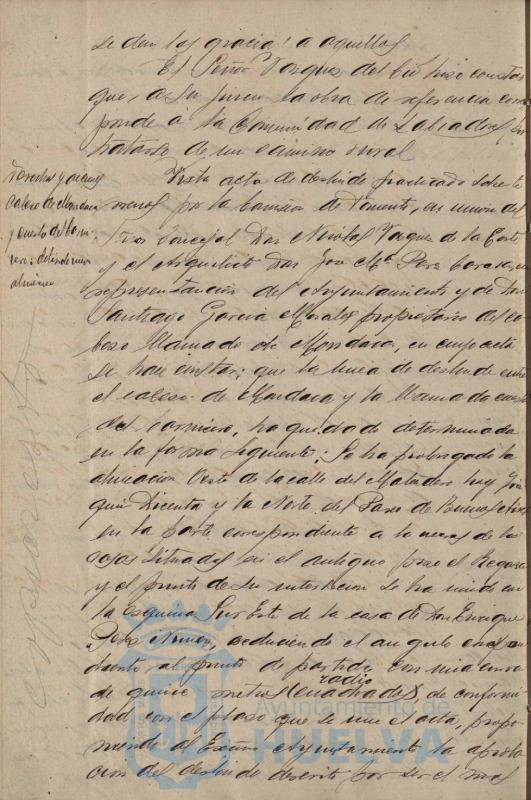 se den las gracias a aquellos
El Señor Vazquez del Cid hizo constar
que, a su juicio la obra de referencia corres
ponde a la Comunidad de Labradores por
tratarse de un camino rural
Terrenos y
Cabezo de Mondaca
y cuesta del Car
nicero: deslinde
Vista acta de deslinde practicado sobre te
rrenos por la Comisión de Fomento, en unión del
Concejal Don Nicolas Vazquez de la Corte
y el Arquitecto Don José Mª Perez Carasa, en
representación del Ayuntamiento y de Don
Santiago García Morales propietario del ca
bezo llamado de Mondaca, en cuya acta
se hace constar: que la linea de deslinde entre
el cabezo de Mondaca y la llamada cuesta
del carnicero, ha quedado determinada
en la forma siguiente: Se ha prolongado la
alineación Oeste de la calle del Matadero hoy Joa
quin Dicenta y la Norte del Paseo de Buenos Aires
en la parte correspondiente a la acera de las
casas situadas en el antiguo
y el punto de su intersección se ha unido con
la esquina Sur Este de la casa de Don Enrique
Perez
al punto de partida con una
radio
de quince metros cuadrados, de conformi
dad con el plano que se une al acta, propo
niendo al Excmo Ayuntamiento la aproba
ción del deslinde descrito por ser el mas
Ayuntamiento de
HUELVA